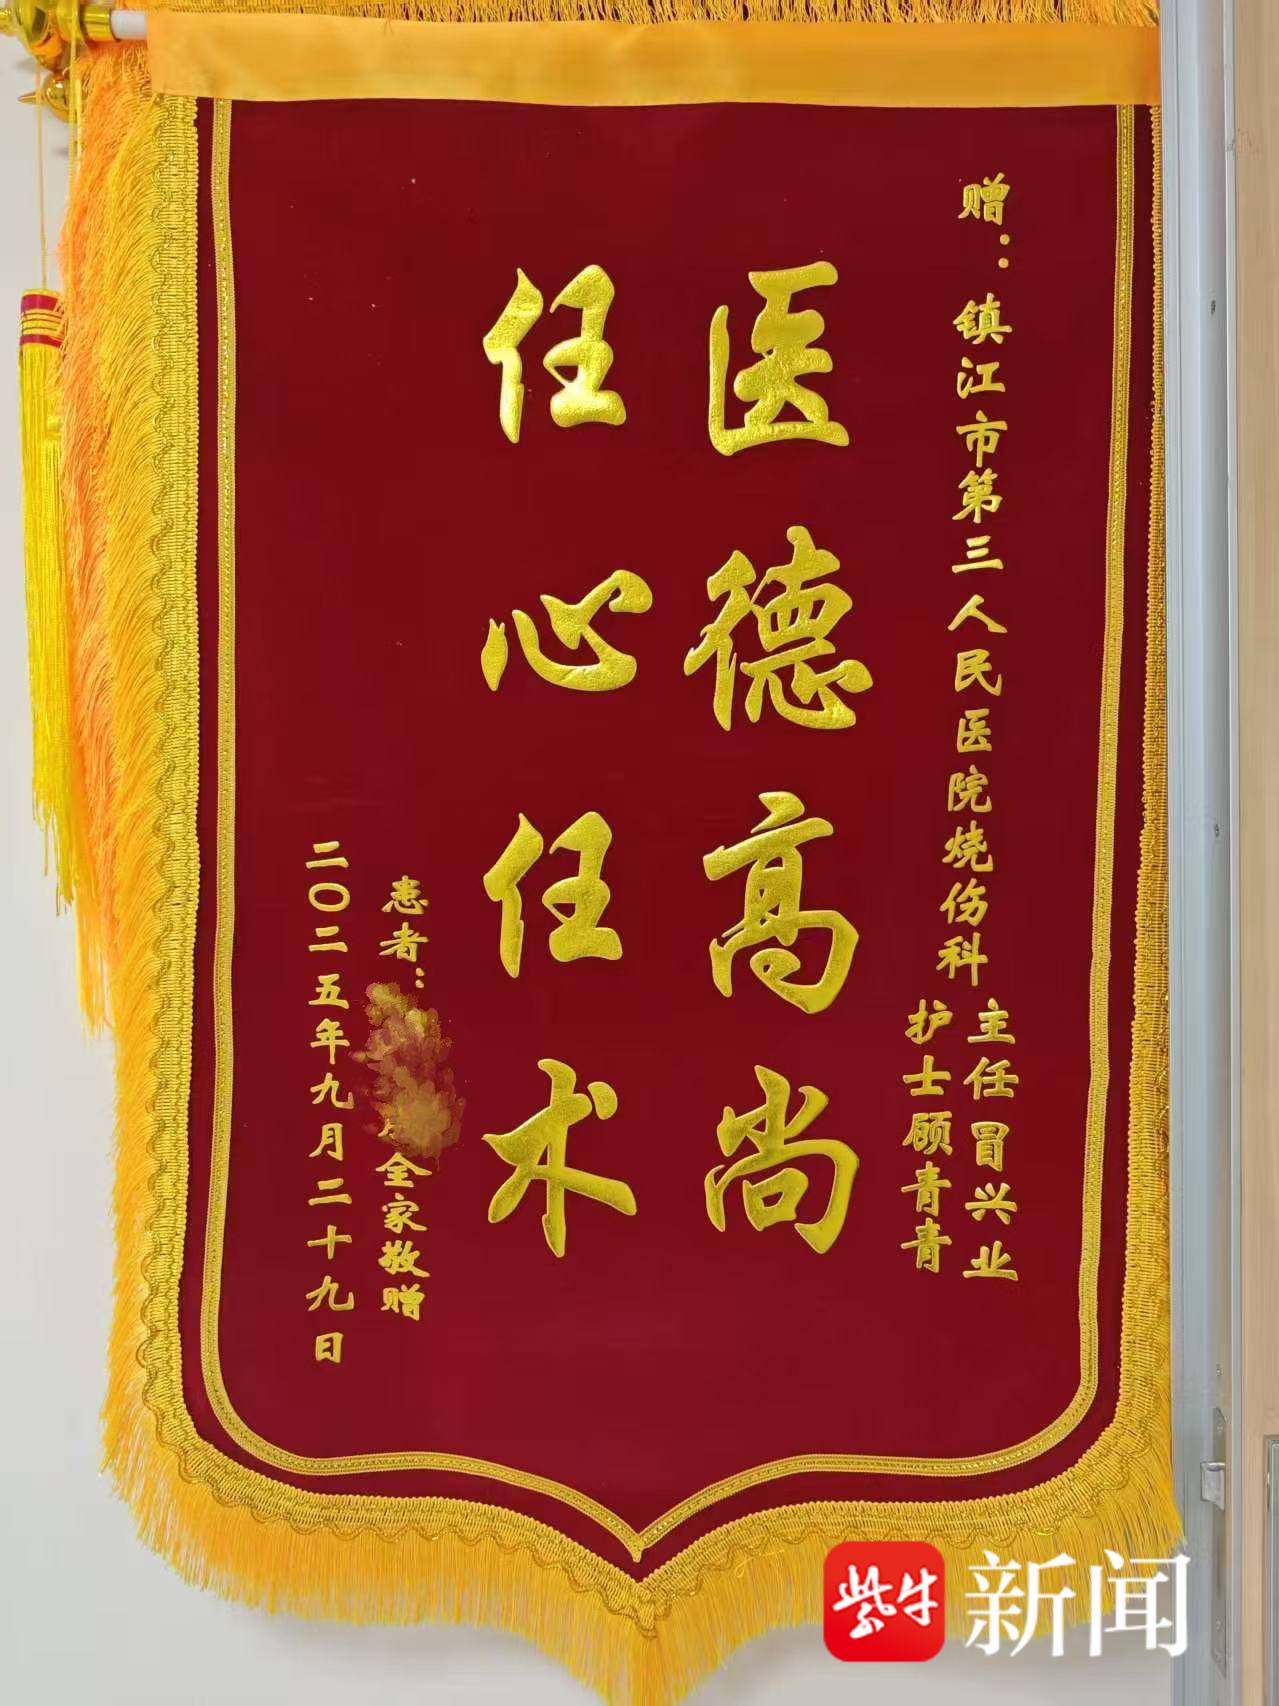 赠：镇江市第三人民医院烧伤科
主任冒兴业
护士顾青青
医德高尚
任心任术
患者：
全家敬赠
二〇二五年九月二十九日
紫牛
新闻